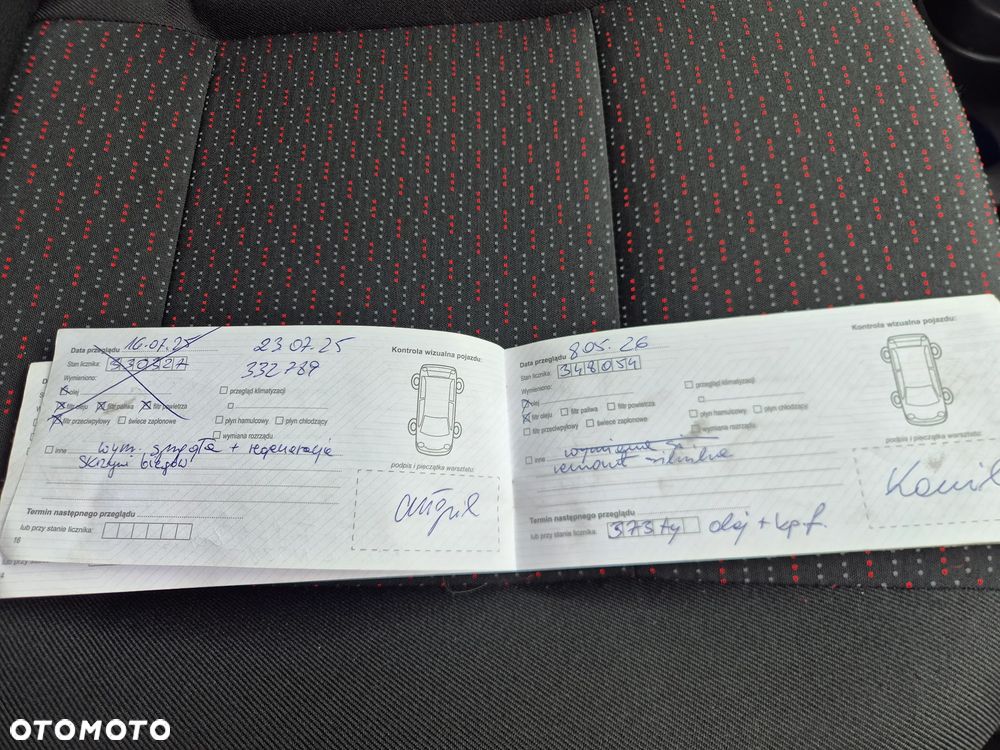 Data przeglądu 16.07.25 23.07.25
Stan licznika: 330327 332789
Kontrola wizualna pojazdu:
Wymieniono:
olej przegląd klimatyzacji
filtr oleju filtr paliwa filtr powietrza
filtr przeciwpyłowy świece zapłonowe płyn hamulcowy płyn chłodzący
wymiana rozrządu
inne wym. sprzęgła + regeneracja
skrzyni biegów
podpis i pieczątka warsztatu:
Termin następnego przeglądu
lub przy stanie licznika:
16
Data przeglądu 8 05. 26
Stan licznika: 348054
Kontrola wizualna pojazdu:
Wymieniono:
olej przegląd klimatyzacji
filtr oleju filtr paliwa filtr powietrza
filtr przeciwpyłowy świece zapłonowe płyn hamulcowy płyn chłodzący
wymiana rozrządu
inne
remont silnika
podpis i pieczątka warsztatu:
Kamil
Termin następnego przeglądu
lub przy stanie licznika: olej + kpf.
4
OTOMOTO